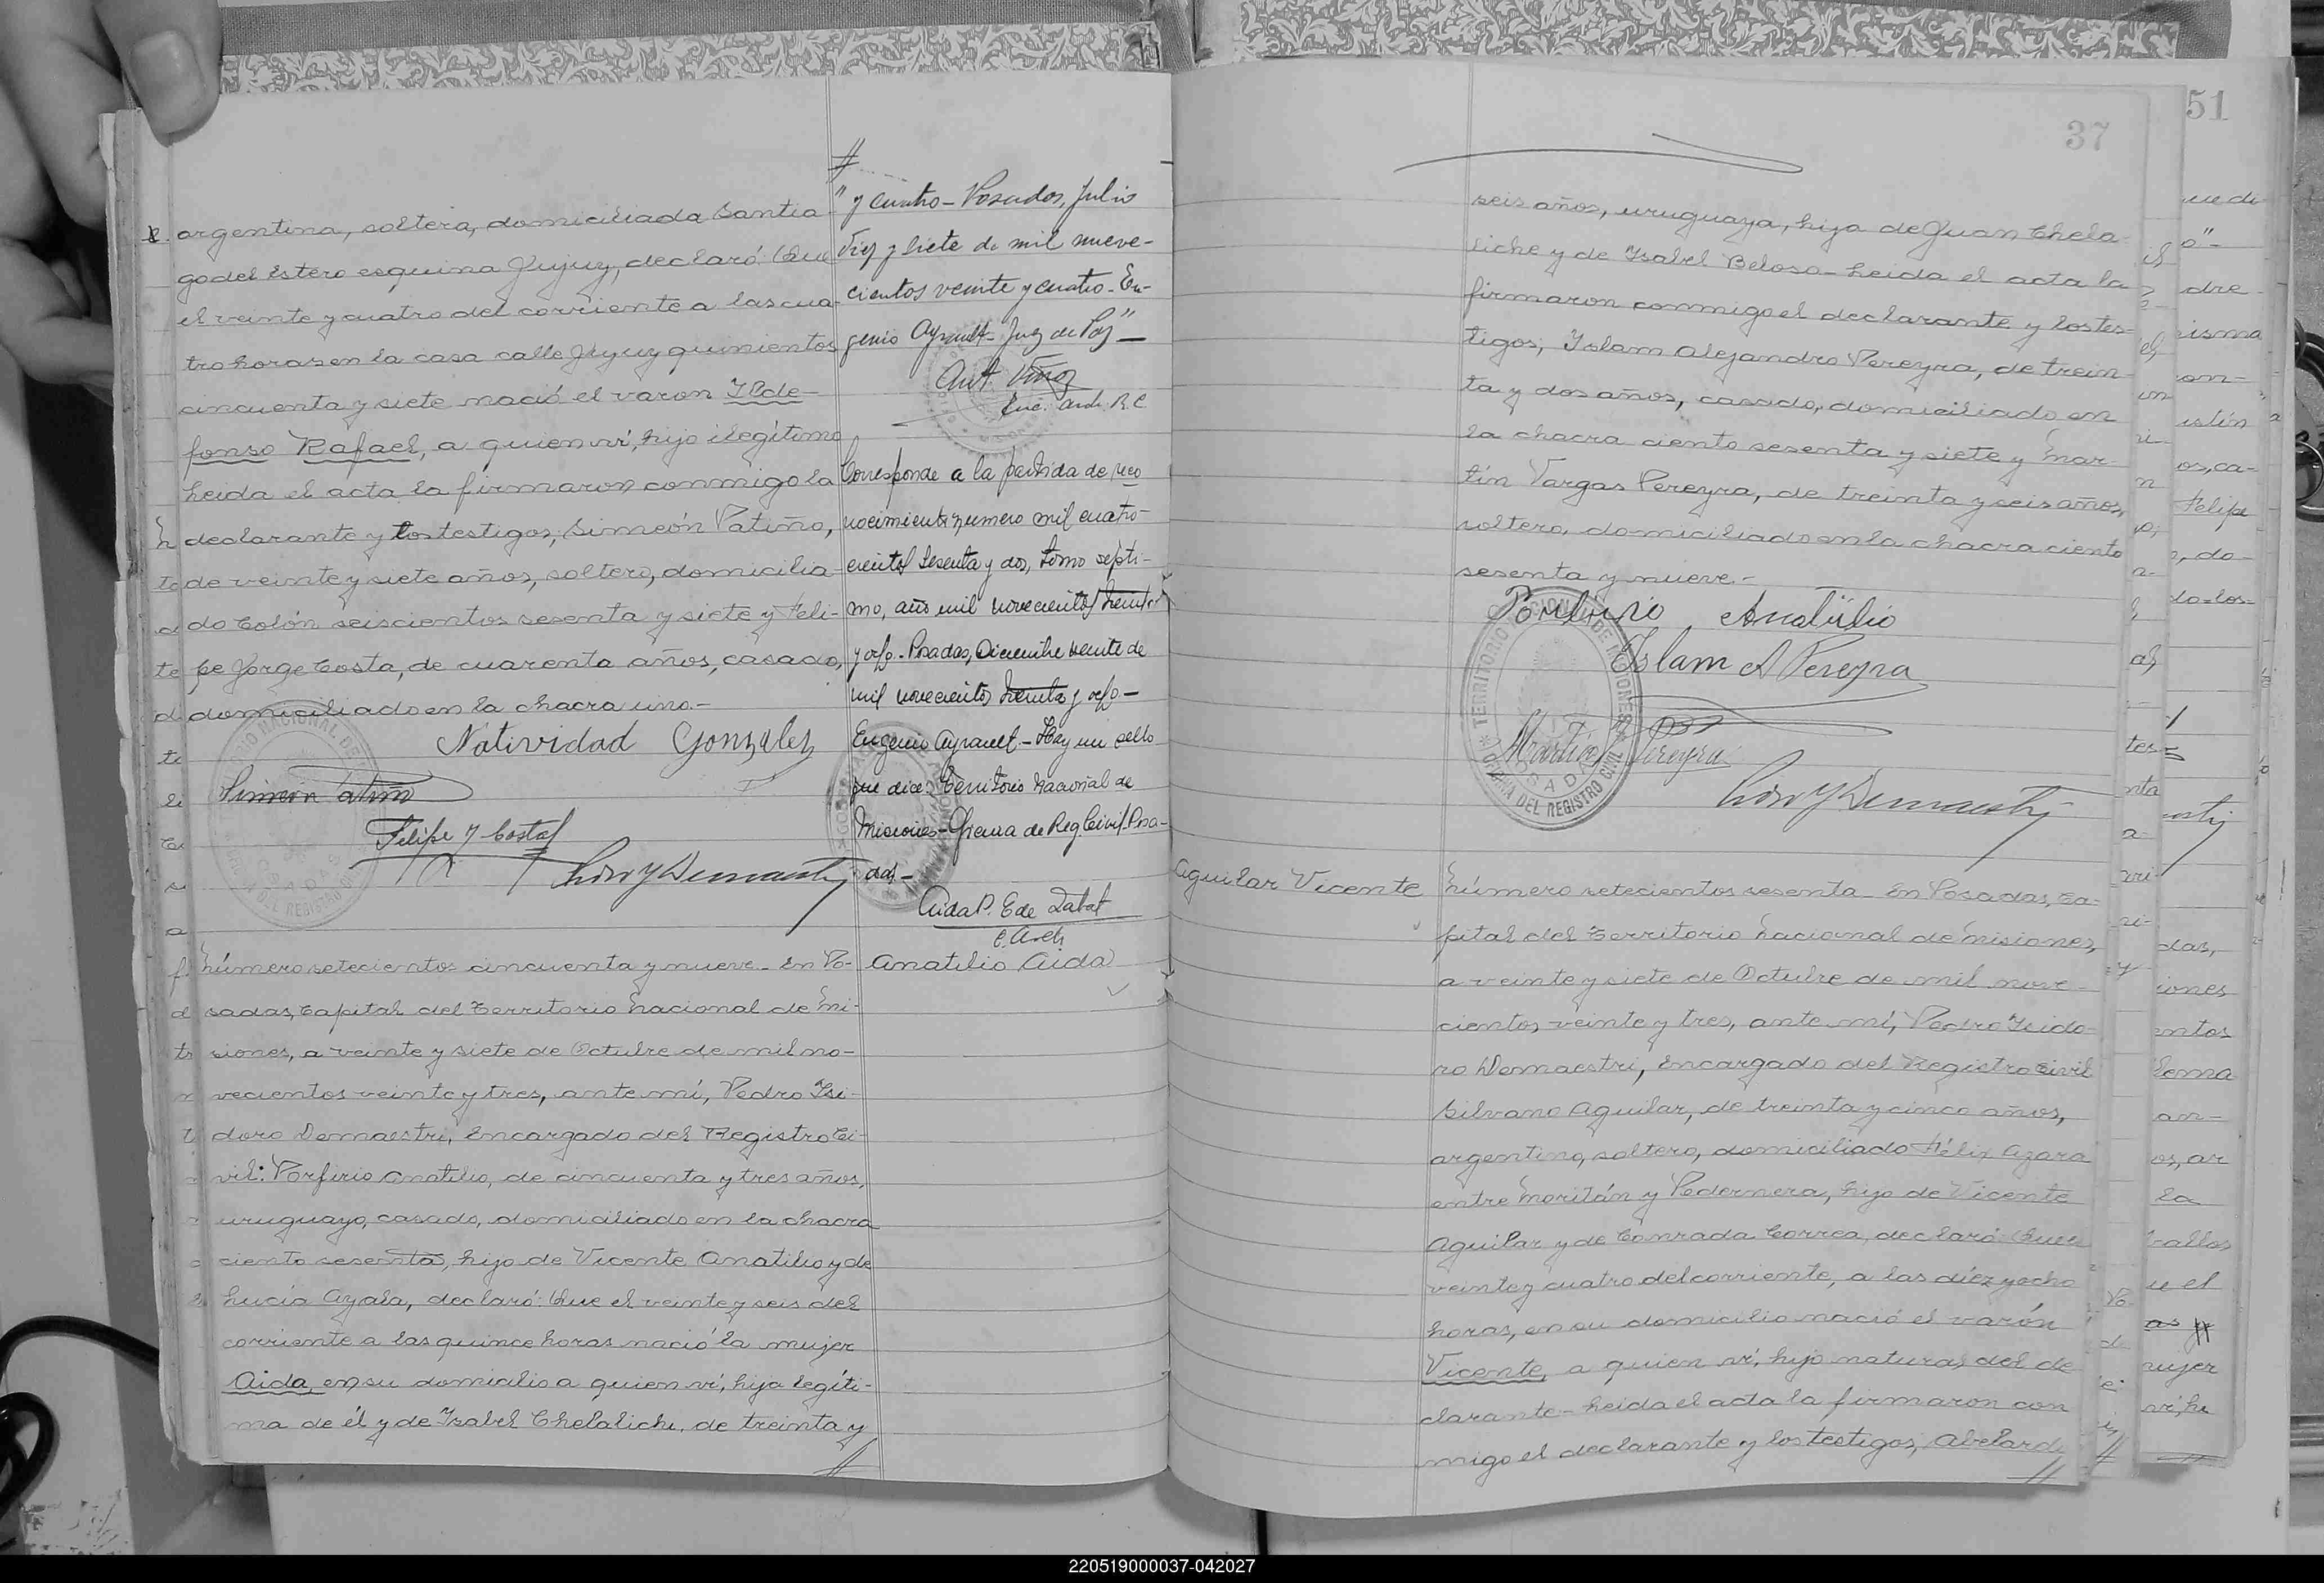 argentina, soltera, domiciliada Santia-
go del Estero esquina Jujuy, declaró: Que
el veinte y cuatro del corriente a las cua-
tro horas en la casa calle Jujuy quinientos
cincuenta y siete nació el varon Ilde-
fonso Rafael, a quien ví, hijo ilegítimo
Leida el acta la firmaron conmigo la
declarante y los testigos, Simeón Patiño,
de veinte y siete años, soltero, domicilia-
do Colón seiscientos sesenta y siete y Feli-
pe Jorge Costa, de cuarenta años, casado,
domiciliado en la chacra uno.-
Natividad Gonzalez
Simeon Patiño
Felipe J Costa
Número setecientos cincuenta y nueve - En Po-
sadas, Capital del Territorio Nacional de Mi-
siones, a veinte y siete de Octubre de mil no-
vecientos veinte y tres, ante mí, Pedro Isi-
doro Demaestri, Encargado del Registro Ci-
vil: Porfirio Anatilio, de cincuenta y tres años,
uruguayo, casado, domiciliado en la chacra
ciento sesenta, hijo de Vicente Anatilio y de
Lucía Ayala, declaró: Que el veinte y seis del
corriente a las quince horas nació la mujer
Aida, en su domicilio a quien ví, hija legíti-
ma de él y de Isabel Chelaliche, de treinta y
//
//
" y cuatro - Posadas, Julio
diez y siete de mil nueve-
cientos veinte y cuatro - Eu-
genio Ayrault - Juez de Paz" -
Ant. Viñoz
Enc. Arch. R. C.
Corresponde a la partida de reco
nocimiento número mil cuatro-
cientos sesenta y dos, tomo septi-
mo, año mil novecientos treinta
y ocho - Posadas, Diciembre veinte de
mil novecientos treinta y ocho -
Eugenio Ayrault - Hay un sello
que dice: Territorio Nacional de
Misiones - Oficina de Reg. Civil. Posa-
das -
Aida P. E de Labat
E. Arch.
Anatilio Aida
37
seis años, uruguaya, hija de Juan Chela-
liche y de Isabel Beloso - Leida el acta la
firmaron conmigo el declarante y los tes-
tigos, Islam Alejandro Pereyra, de trein-
ta y dos años, casado, domiciliado en
la chacra ciento sesenta y siete y Mar-
tín Vargas Pereyra, de treinta y seis años,
soltero, domiciliado en la chacra ciento
sesenta y nueve.-
Porfirio Anatilio
Islam A Pereyra
Martín Pereyra
TERRITORIO NACIONAL DE MISIONES
POSADAS
OFICINA DEL REGISTRO CIVIL
Aguilar Vicente
Número setecientos sesenta - En Posadas, Ca-
pital del Territorio Nacional de Misiones,
a veinte y siete de Octubre de mil nove-
cientos veinte y tres, ante mí, Pedro Isido-
ro Demaestri, Encargado del Registro Civil
Silvano Aguilar, de treinta y cinco años,
argentino, soltero, domiciliado Félix Azara
entre Moritán y Pedernera, hijo de Vicente
Aguilar y de Conrada Correa, declaró: Que el
veinte y cuatro del corriente, a las diez y ocho
horas, en su domicilio nació el varón
Vicente, a quien ví, hijo natural del de
clarante - Leida el acta la firmaron con
migo el declarante y los testigos, Abelardo
//
51
220519000037-042027